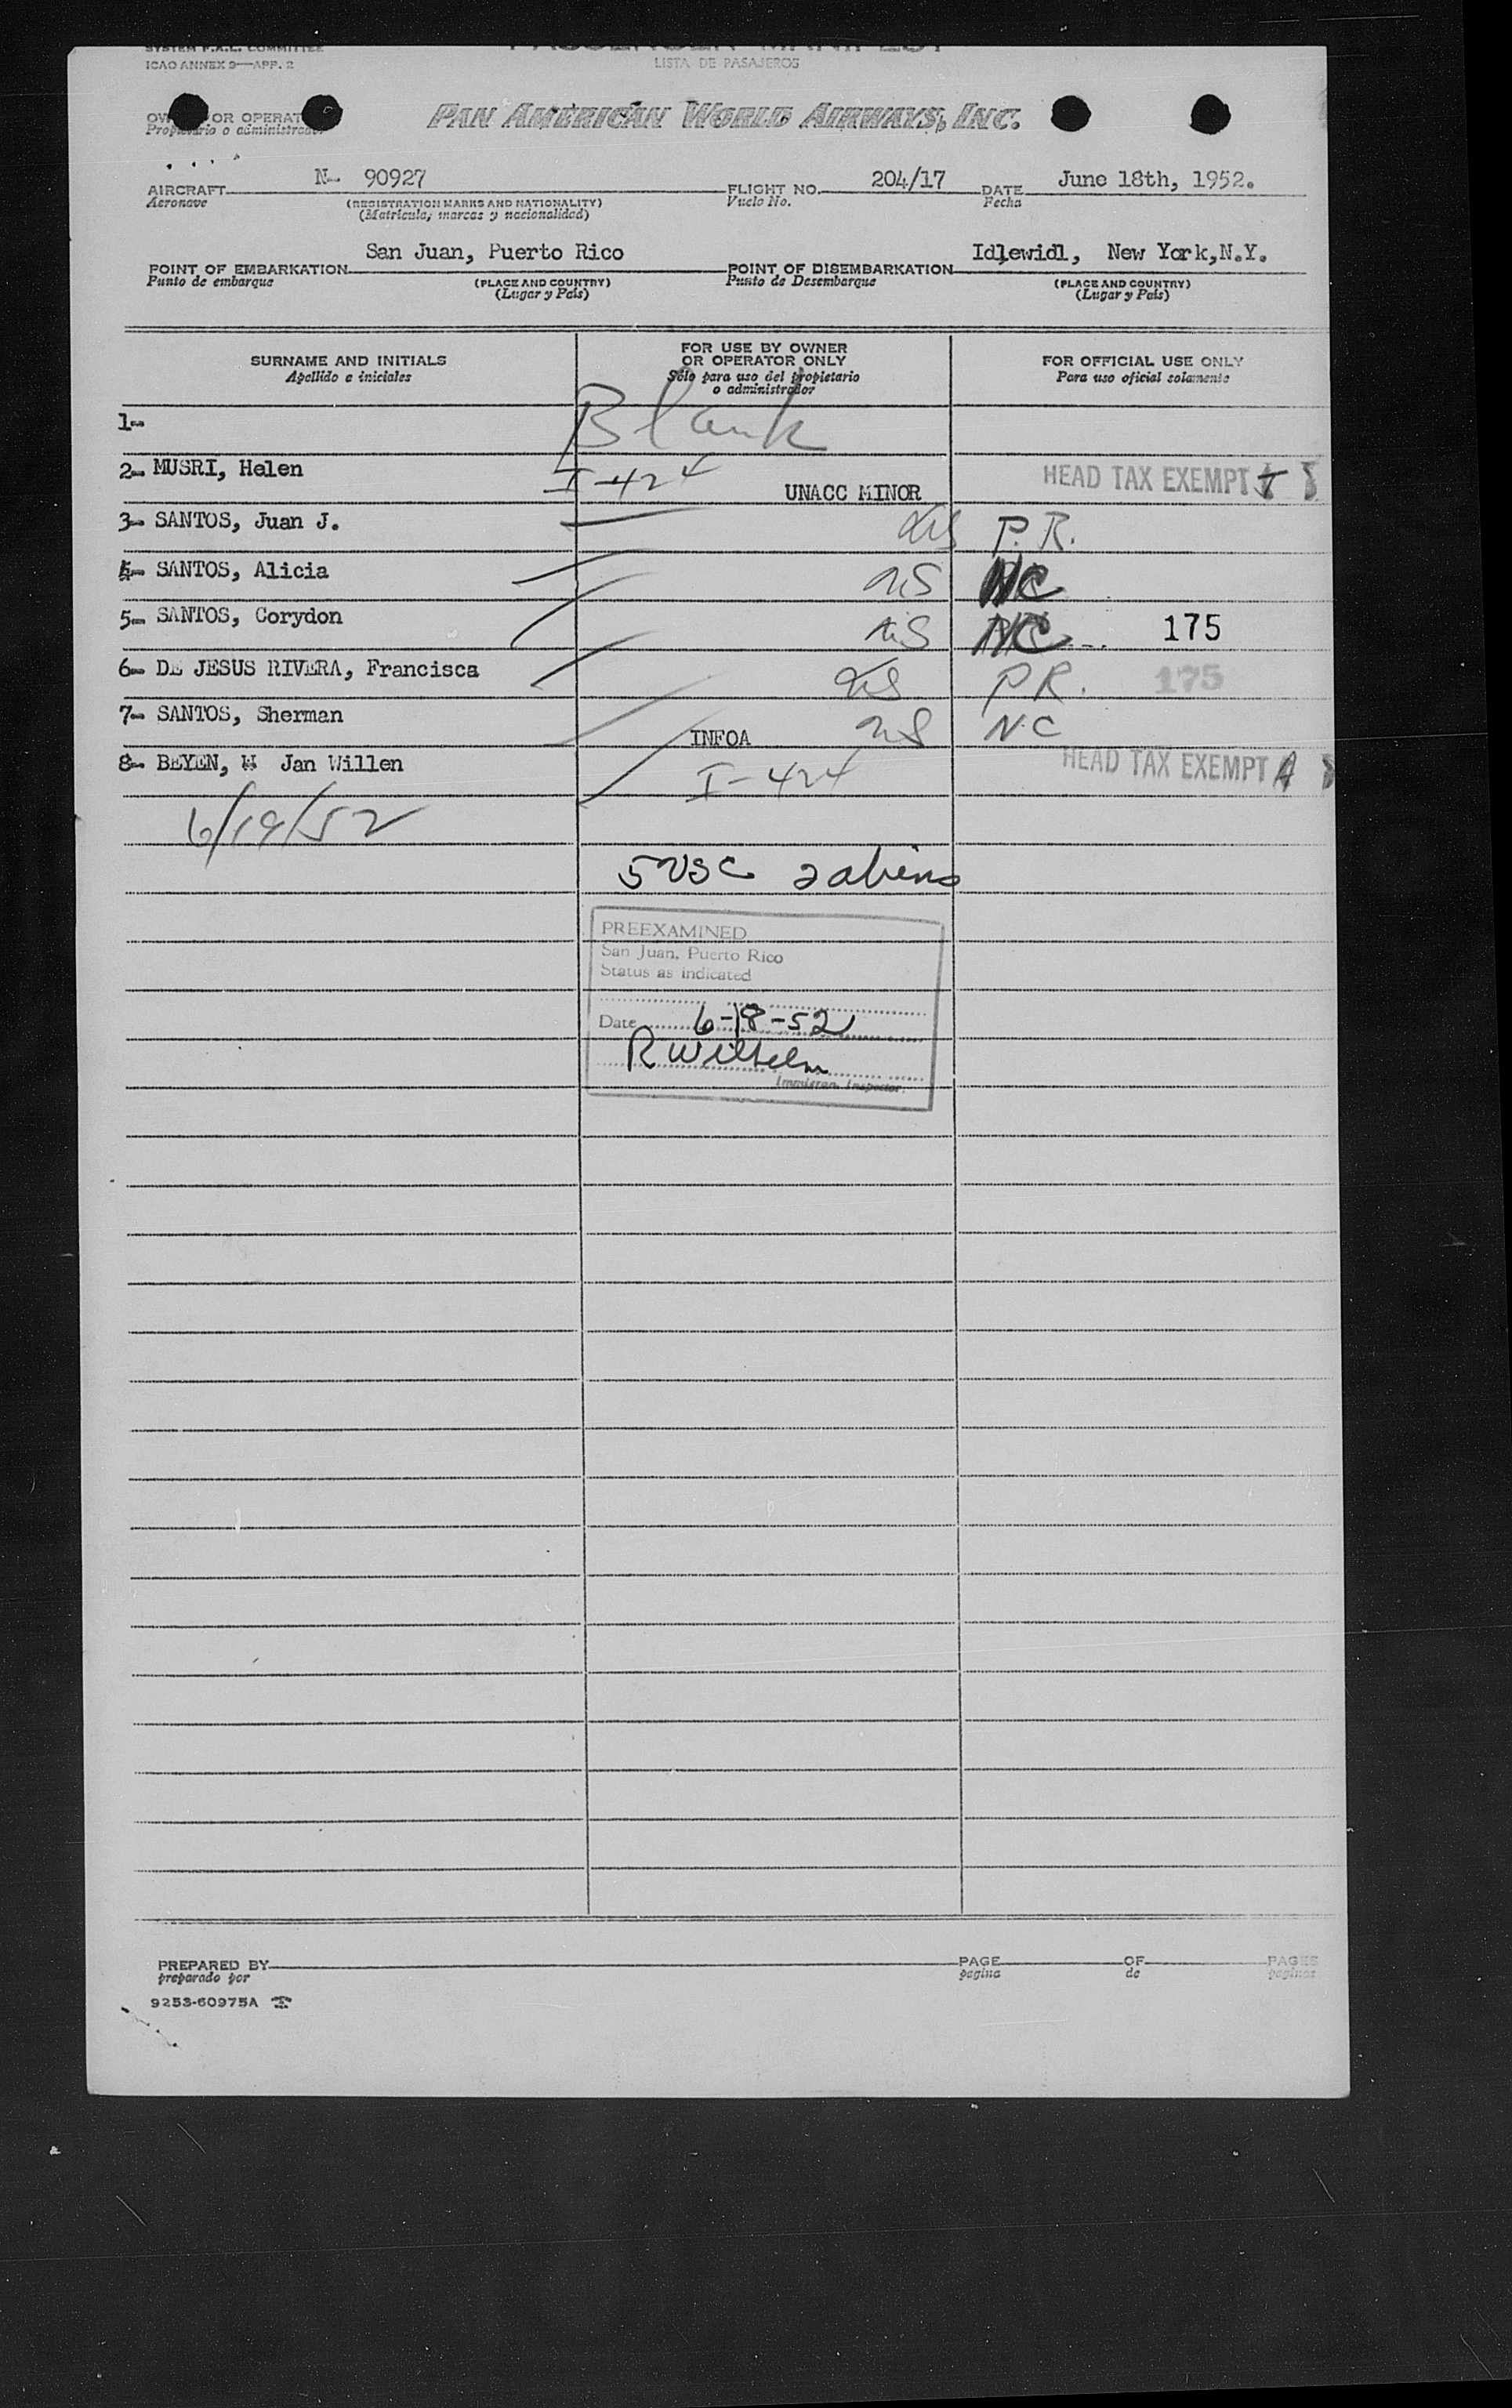 SYSTEM F.A.L. COMMITTEE
ICAO ANNEX 9—APP. 2
PASSENGER MANIFEST
LISTA DE PASAJEROS
OR OPERAT
Propietario o administrador
PAN AMERICAN WORLD AIRWAYS, INC.
AIRCRAFT N- 90927 FLIGHT NO. 204/17 DATE June 18th, 1952.
Aeronave (REGISTRATION MARKS AND NATIONALITY) Vuelo No. Fecha
(Matricula, marcas y nacionalidad)
POINT OF EMBARKATION San Juan, Puerto Rico POINT OF DISEMBARKATION Idlewidl, New York,N.Y.
Punto de embarque (PLACE AND COUNTRY) Punto de Desembarque (PLACE AND COUNTRY)
(Lugar y País) (Lugar y País)
SURNAME AND INITIALS FOR USE BY OWNER OR OPERATOR ONLY FOR OFFICIAL USE ONLY
Apellido e iniciales Sólo para uso del propietario o administrador Para uso oficial solamente
1- Blank
2- MUSRI, Helen I-424 UNACC MINOR HEAD TAX EXEMPT
3- SANTOS, Juan J. US P.R.
4- SANTOS, Alicia US NC
5- SANTOS, Corydon US NC 175
6- DE JESUS RIVERA, Francisca US P.R. 175
7- SANTOS, Sherman INFOA US NC
8- BEYEN, Jan Willen I-424 HEAD TAX EXEMPT A
6/19/52
5 USC 2 aliens
PREEXAMINED
San Juan, Puerto Rico
Status as indicated
Date 6-18-52
R Wilhelm
Immigran. Inspector.
PREPARED BY PAGE OF PAGES
preparado por pagina de paginas
9253-60975A